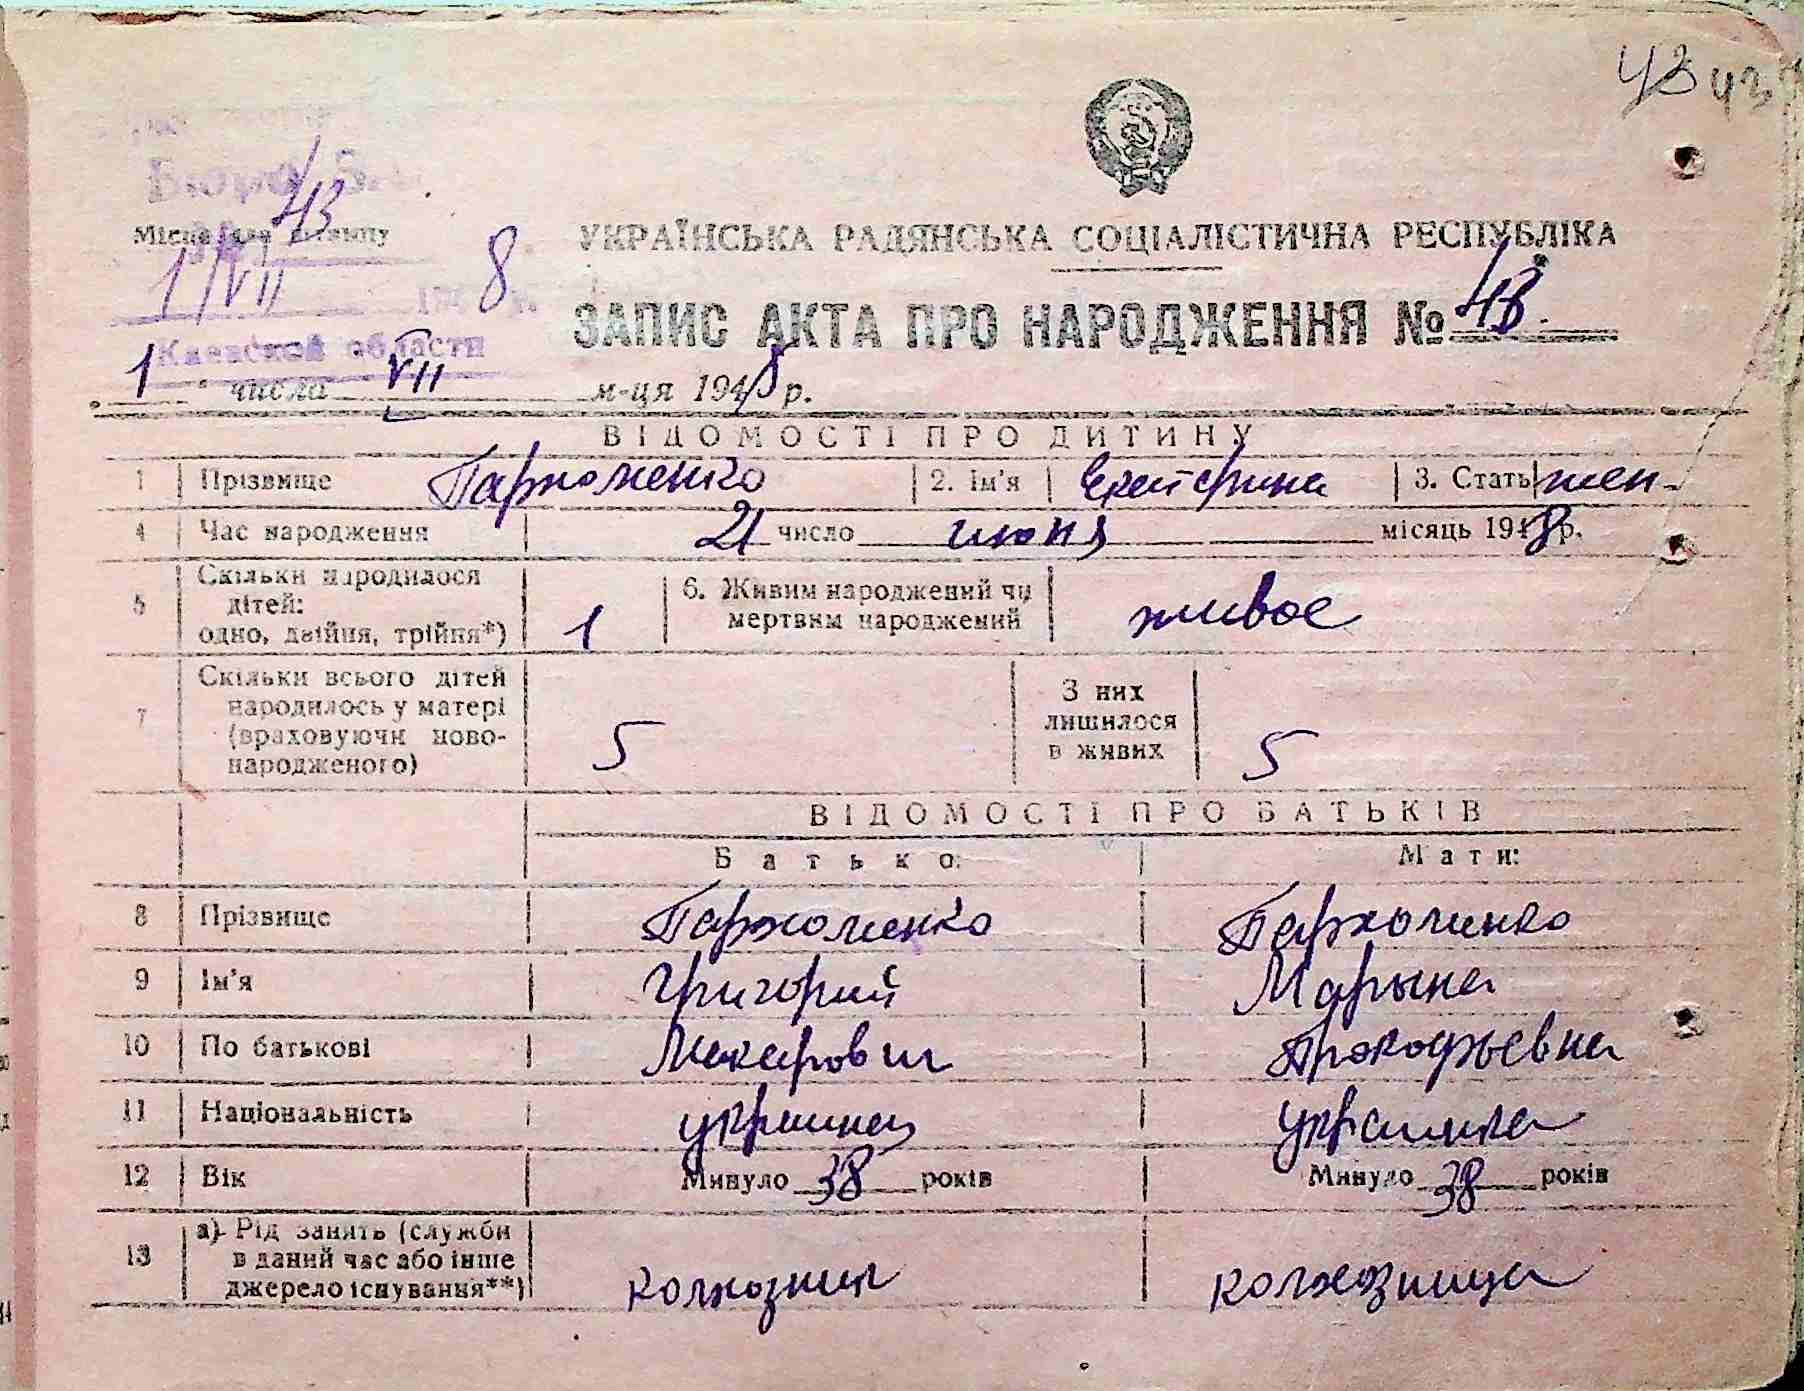 43 43
Бюро
43
Місце для штампу
1/VII 1948 р.
Киевской области
УКРАЇНСЬКА РАДЯНСЬКА СОЦІАЛІСТИЧНА РЕСПУБЛІКА
ЗАПИС АКТА ПРО НАРОДЖЕННЯ № 43.
1 числа VII м-ця 1948 р.
ВІДОМОСТІ ПРО ДИТИНУ
1 Прізвище Пархоменко 2. Ім'я Екатерина 3. Стать жен.
4 Час народження 21 число июня місяць 1948 р.
5 Скільки народилося
дітей:
одно, двійня, трійня*) 1 6. Живим народжений чи
мертвим народжений живое
7 Скільки всього дітей
народилось у матері
(враховуючи ново-
народженого) 5 З них
лишилося
в живих 5
ВІДОМОСТІ ПРО БАТЬКІВ
Батько: Мати:
8 Прізвище Пархоменко Пархоменко
9 Ім'я Григорий Марына
10 По батькові Макарович Прокофьевна
11 Національність украинец украинка
12 Вік Минуло 38 років Минуло 38 років
13 а) Рід занять (служби
в даний час або інше
джерело існування**) колхозник колхозница